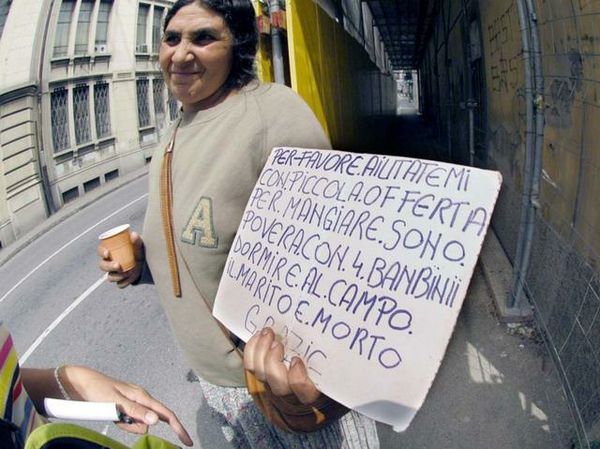 PER-FAVORE.AIUTATEMI
CON.PICCOLA.OFFERTA
PER MANGIARE.SONO.
POVERA CON.4.BANBINI
DORMIRE.AL.CAMPO.
IL MARITO E.MORTO
GRAZIE
A